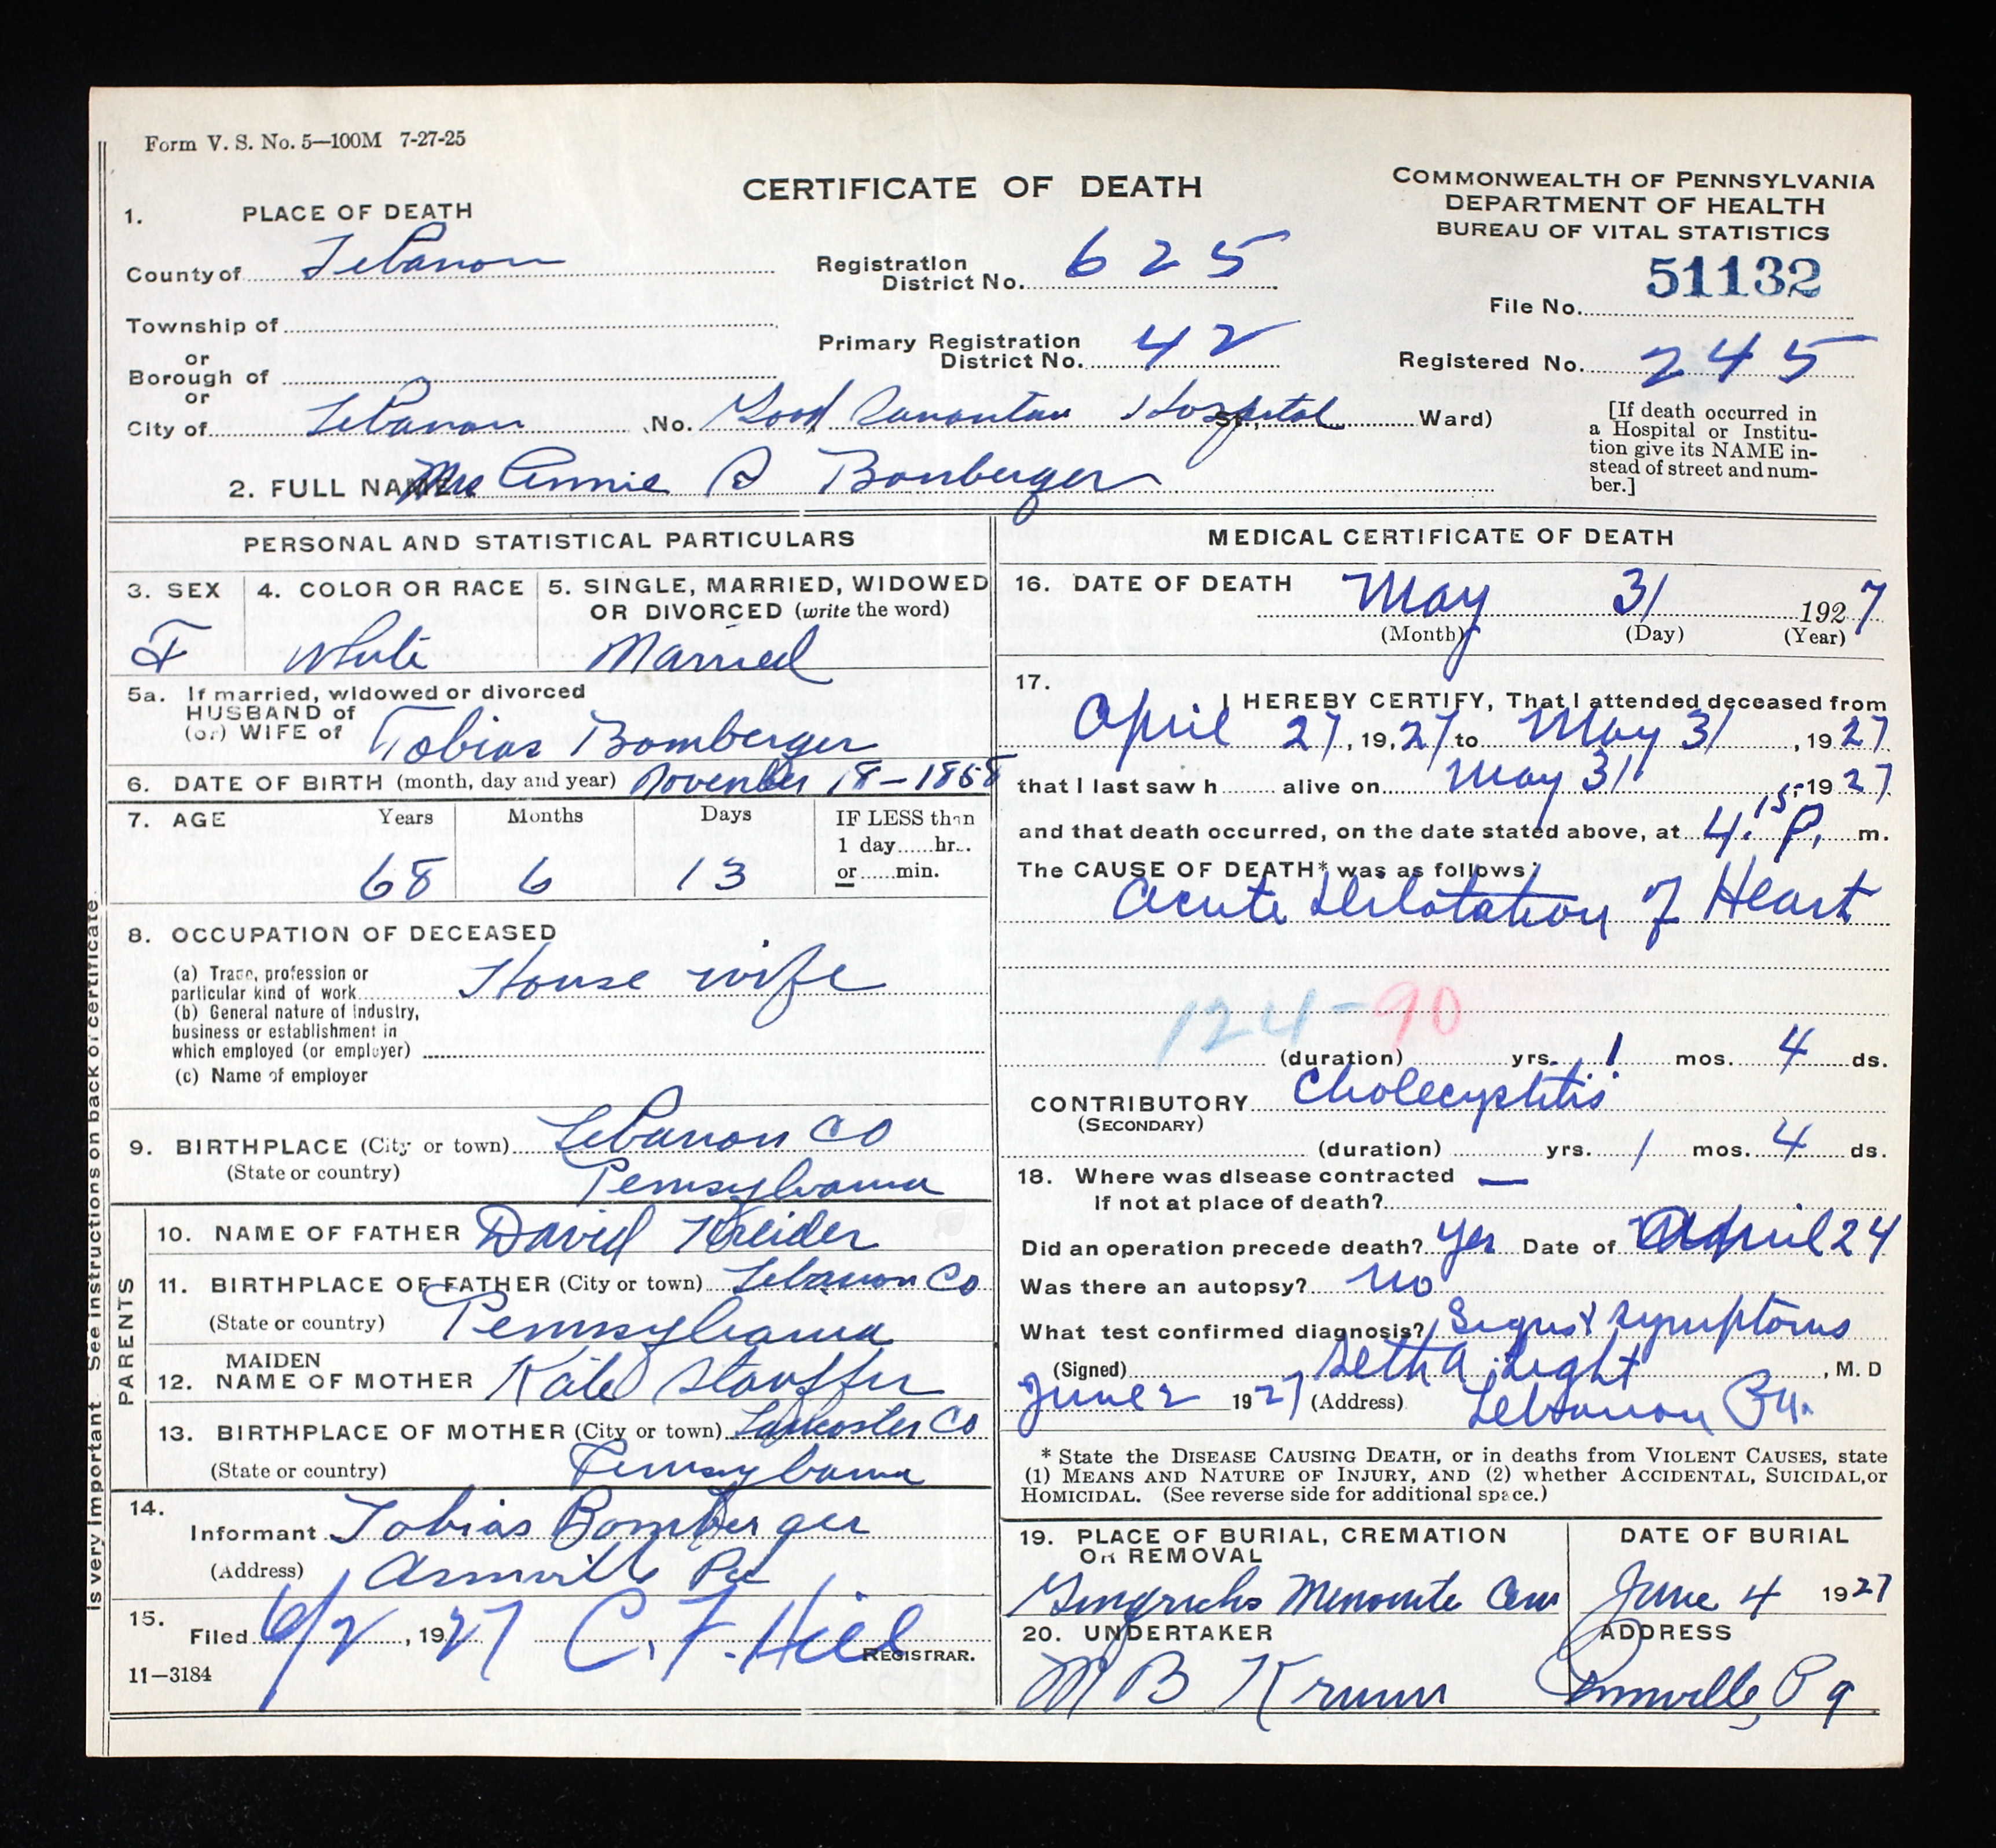 Form V. S. No. 5—100M 7-27-25
CERTIFICATE OF DEATH
COMMONWEALTH OF PENNSYLVANIA
DEPARTMENT OF HEALTH
BUREAU OF VITAL STATISTICS
1. PLACE OF DEATH
County of Lebanon
Registration District No. 625
File No. 51132
Township of
or
Borough of
Primary Registration District No. 42
Registered No. 245
or
City of Lebanon No. Good Samaritan Hospital St., Ward)
[If death occurred in
a Hospital or Institu-
tion give its NAME in-
stead of street and num-
ber.]
2. FULL NAME Mrs Annie S Bomberger
PERSONAL AND STATISTICAL PARTICULARS
3. SEX
F
4. COLOR OR RACE
White
5. SINGLE, MARRIED, WIDOWED
OR DIVORCED (write the word)
Married
5a. If married, widowed or divorced
HUSBAND of
(or) WIFE of Tobias Bomberger
6. DATE OF BIRTH (month, day and year) November 18-1858
7. AGE Years Months Days IF LESS than
1 day......hr..
or......min.
68 6 13
8. OCCUPATION OF DECEASED
(a) Trade, profession or
particular kind of work House wife
(b) General nature of industry,
business or establishment in
which employed (or employer)
(c) Name of employer
9. BIRTHPLACE (City or town) Lebanon Co
(State or country) Pennsylvania
PARENTS
10. NAME OF FATHER David Kreider
11. BIRTHPLACE OF FATHER (City or town) Lebanon Co
(State or country) Pennsylvania
12. MAIDEN NAME OF MOTHER Kate Stauffer
13. BIRTHPLACE OF MOTHER (City or town) Lancaster Co
(State or country) Pennsylvania
14.
Informant Tobias Bomberger
(Address) Annville Pa
15.
Filed 6/2, 1927 C. F. Hiel
REGISTRAR.
11—3184
is very important. See instructions on back of certificate.
MEDICAL CERTIFICATE OF DEATH
16. DATE OF DEATH May 31 1927
(Month) (Day) (Year)
17. I HEREBY CERTIFY, That I attended deceased from
April 27, 1927 to May 31, 1927
that I last saw h alive on May 31, 1927
and that death occurred, on the date stated above, at 4.15 P. m.
The CAUSE OF DEATH* was as follows:
Acute Dilatation of Heart
124-90
(duration) yrs. 1 mos. 4 ds.
CONTRIBUTORY Cholecystitis
(SECONDARY)
(duration) yrs. 1 mos. 4 ds.
18. Where was disease contracted —
if not at place of death?
Did an operation precede death? yes Date of April 24
Was there an autopsy? no
What test confirmed diagnosis? Signs & Symptoms
(Signed) Seth A. Light, M. D
June 2 1927 (Address) Lebanon Pa.
* State the DISEASE CAUSING DEATH, or in deaths from VIOLENT CAUSES, state
(1) MEANS AND NATURE OF INJURY, AND (2) whether ACCIDENTAL, SUICIDAL, or
HOMICIDAL. (See reverse side for additional space.)
19. PLACE OF BURIAL, CREMATION
OR REMOVAL
Gingrichs Menonite Cem
DATE OF BURIAL
June 4 1927
20. UNDERTAKER
M B Krum
ADDRESS
Annville, Pa